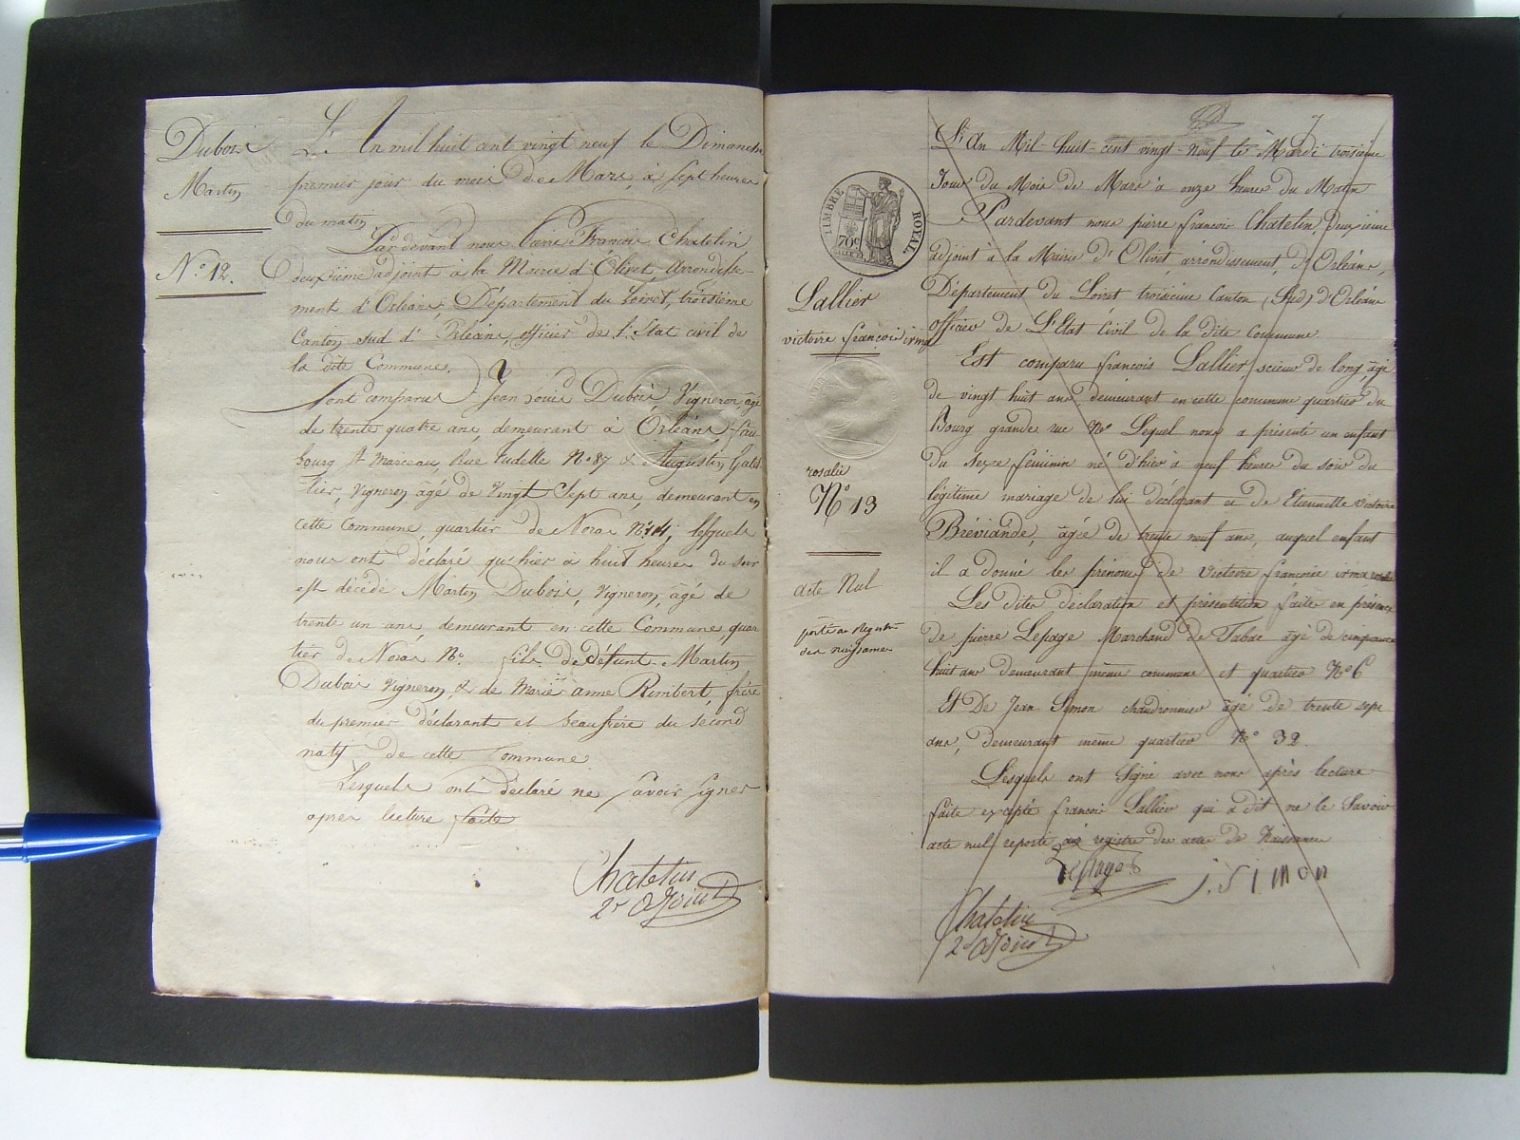 Dubois
Martin
N.º 12.
L'An mil huit cent vingt neuf le Dimanche
premier jour du mois de Mars, à sept heures
du matin
Pardevant nous Pierre François Chatelin,
deuxième adjoint à la Mairie d'Olivet, arrondisse-
ment d'Orléans, Département du Loiret, troisième
Canton sud d'Orléans, officier de l'Etat civil de
la dite Commune,
Sont comparus Jean Louis Dubois Vigneron, âgé
de trente quatre ans, demeurant à Orléans, fau-
bourg St Marceau, Rue Tudelle Nº 87 & Augustin
Vigneron âgé de Vingt Sept ans, demeurant en
cette Commune, quartier de Noras Nº 14, lesquels
nous ont déclaré qu'hier à huit heures du soir
est décédé Martin Dubois, Vigneron, âgé de
trente un ans, demeurant en cette Commune quar
tier de Noras Nº fils de défunt Martin
Dubois Vigneron, & de Marie anne Rimbert, frère
du premier déclarant et beaufrère du second
natif de cette Commune
Lesquels ont déclaré ne savoir signer
après lecture faite
Chatelin
2e adjoint
7
TIMBRE ROYAL
70c
Lallier
victoire françoise irma
rosalie
Nº 13
acte Nul
porté au Registre
des naissances
L'An Mil-huit-cent vingt-neuf le Mardi troisième
Jour du Mois de Mars à onze heures du Matin
Pardevant nous pierre françois Chatelin, Deuxième
adjoint à la Mairie d'Olivet, arrondissement, d'Orléans,
Département du Loiret troisième Canton (Sud) d'Orléans
officier de L'Etat Civil de la dite Commune.
Est comparu françois Lallier scieur de long, âgé
de vingt huit ans demeurant en cette commune quartier du
Bourg grande rue Nº Lequel nous a présenté un enfant
du sexe féminin né d'hier à neuf heures du soir du
légitime mariage de lui déclarant et de Etiennette victoire
Bréviande, âgée de trente neuf ans, auquel enfant
il a donné les prénoms de victoire françoise irma rosalie
Les dites déclaration et présentation faites en présence
de pierre Lepage Marchand de Tabac âgé de cinquante
huit ans demeurant même commune et quartier Nº 6
Et De Jean Simon chaudronnier âgé de trente sept
ans, demeurant même quartier Nº 32.
Lesquels ont signé avec nous après lecture
faite excepté françois Lallier qui a dit ne le Savoir
acte nul reporté au registre des actes de Naissance
Lepage
J. SIMON
Chatelin
2e adjoint